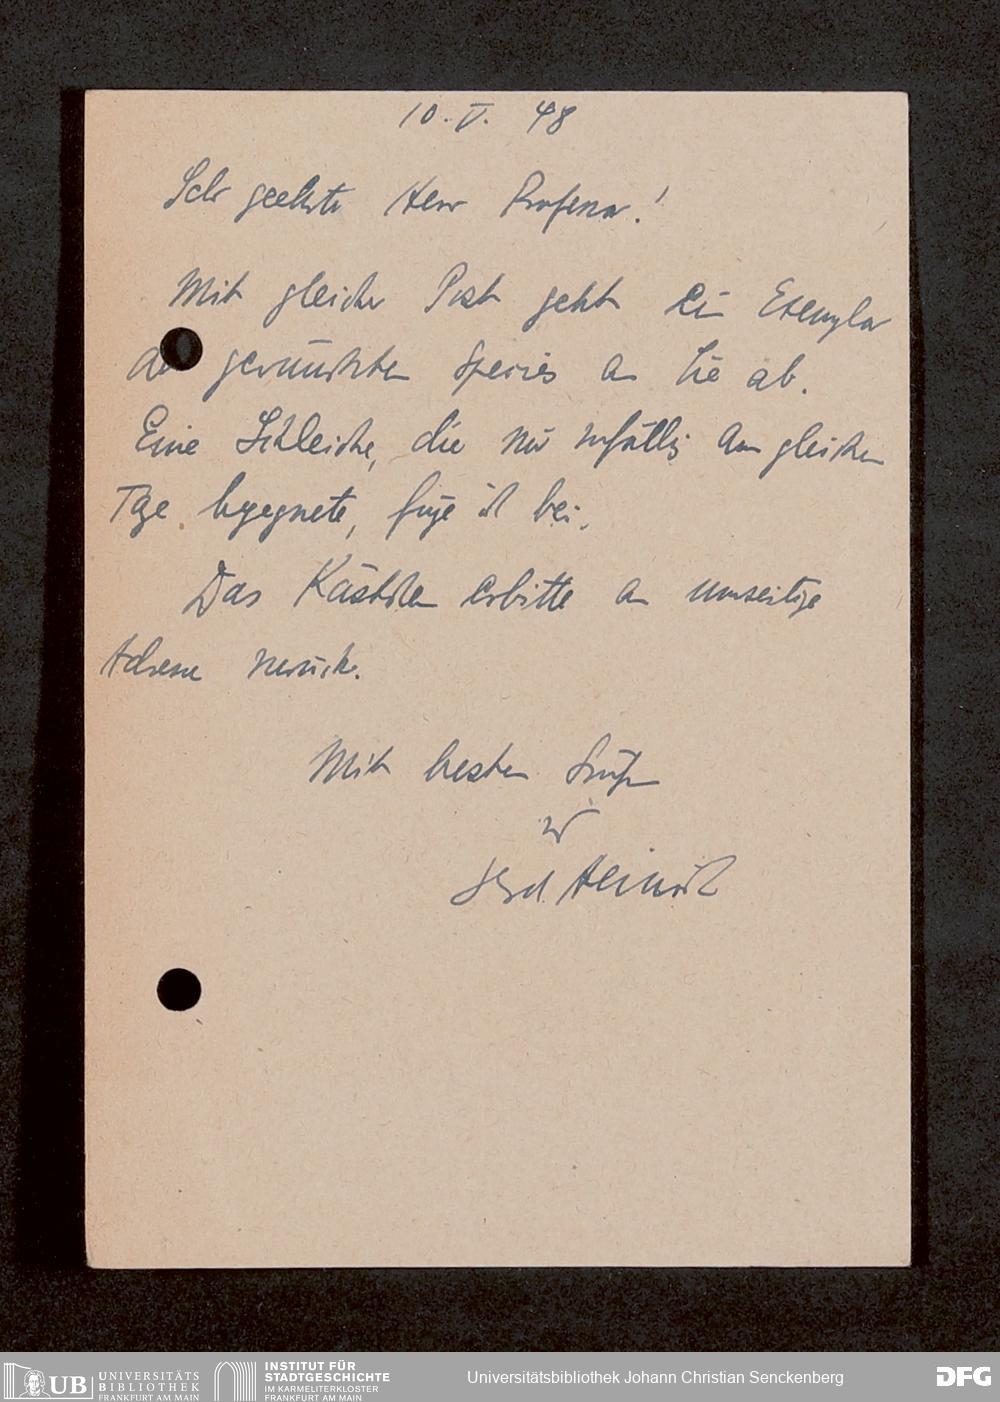 10. V. 48
Sehr geehrter Herr Professor!
Mit gleicher Post geht ein Exemplar
der gewünschten Species an Sie ab.
Eine Schleiche, die mir zufällig am gleichen
Tage begegnete, füge ich bei.
Das Kästchen erbitte an umseitige
Adresse zurück.
Mit besten Grüßen
Ihr
Gerd Heinrich
UB UNIVERSITÄTS
BIBLIOTHEK
FRANKFURT AM MAIN
INSTITUT FÜR
STADTGESCHICHTE
IM KARMELITERKLOSTER
FRANKFURT AM MAIN
Universitätsbibliothek Johann Christian Senckenberg
DFG